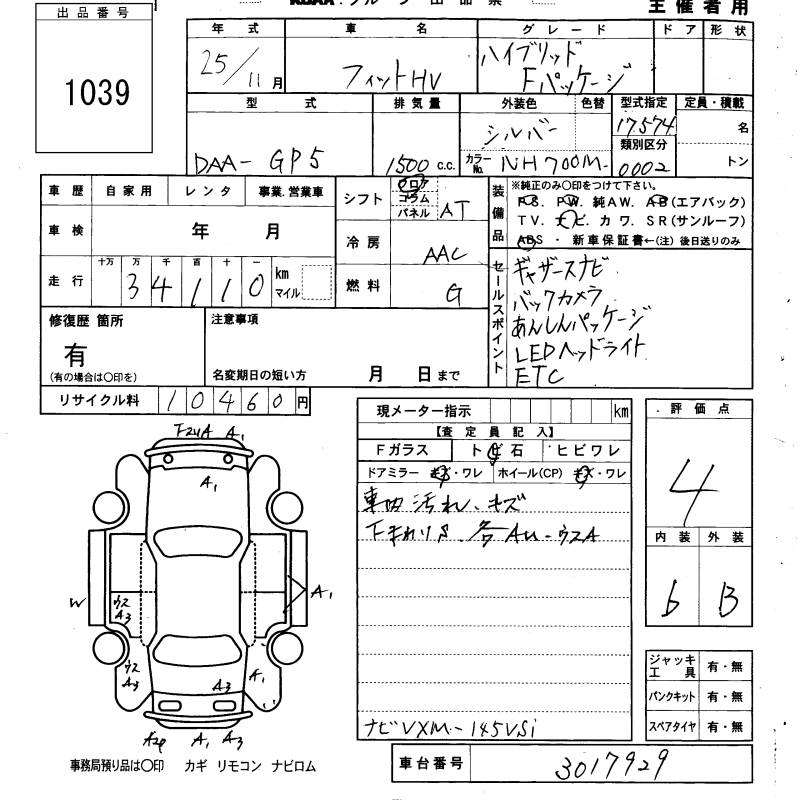 主催者用
出品番号
1039
年式 車名 グレード ドア 形状
25/11月 フィットHV ハイブリッド
Fパッケージ
型式 排気量 外装色 色替 型式指定 定員・積載
シルバー 17574 名
類別区分
DAA-GP5 1500 c.c. カラーNo. NH700M 0002 トン
車歴 自家用 レンタ 事業.営業車
シフト フロア コラム パネル AT
装備品 ※純正のみ〇印をつけて下さい。
PS. PW. 純AW. AB(エアバック)
TV. ナビ. カワ. SR(サンルーフ)
ABS ・ 新車保証書←(注) 後日送りのみ
車検 年 月
冷房 AAC
走行 十万 万 千 百 十 一
34110 km マイル
燃料 G
セールスポイント
ギャザースナビ
バックカメラ
あんしんパッケージ
LEDヘッドライト
ETC
修復歴 箇所 注意事項
有
(有の場合は〇印を) 名変期日の短い方 月 日まで
リサイクル料 10460円
現メーター指示 km
【査定員記入】
Fガラス トビ石 ヒビワレ
ドアミラー キズ・ワレ ホイール(CP) キズ・ワレ
車内汚れ、キズ
下まわりS.
ナビVXM-145VSi
評価点
4
内装 外装
6 B
ジャッキ工具 有・無
パンクキット 有・無
スペアタイヤ 有・無
A1
A1
W ウス A3 A1
ウス A3 A3 A1
A1 A3
事務局預り品は〇印 カギ リモコン ナビロム
車台番号 3017929